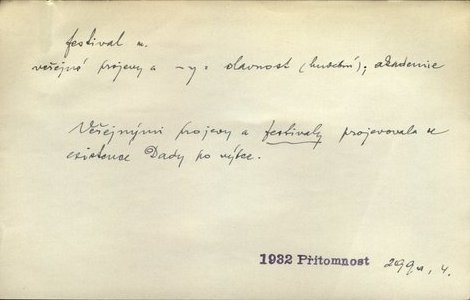 festival m.
veřejné projevy a -y = slavnost (hudební); akademie
Veřejnými projevy a festivaly projevovala se
existence Dady po výtce.
1932 Přítomnost 299a, 4.